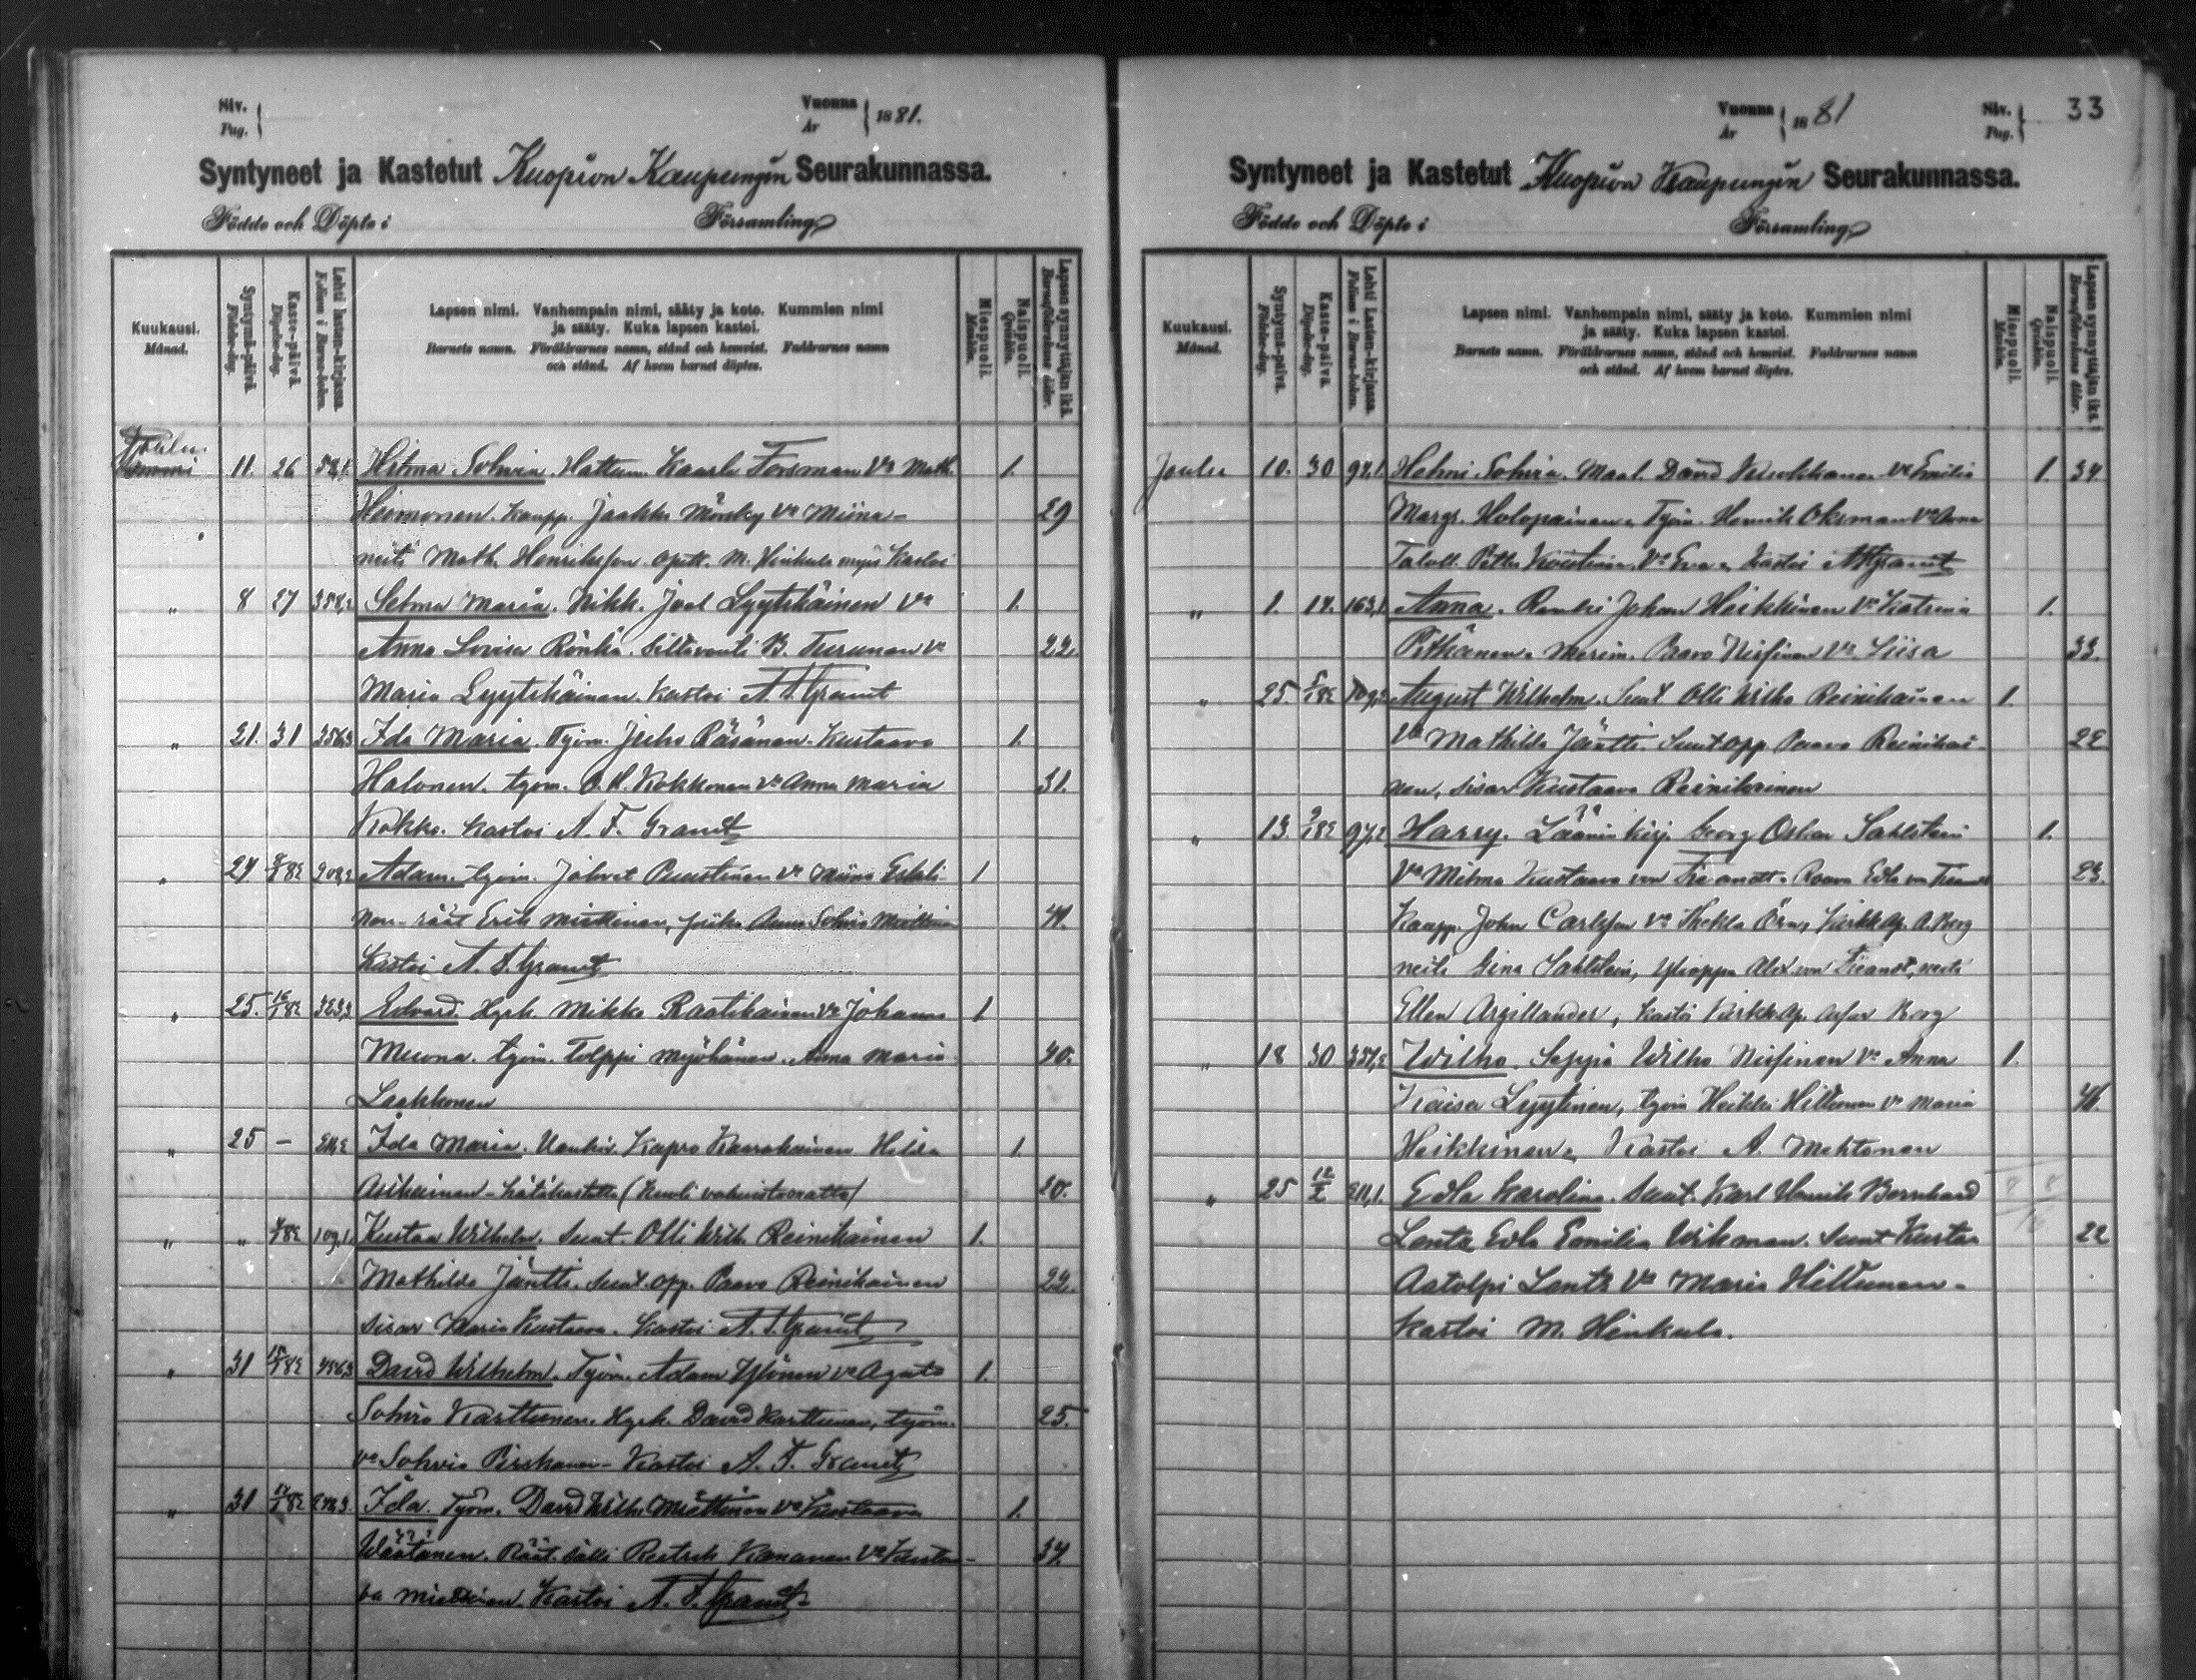 Siv.
Pag.
Vuonna
År
1881.
Syntyneet ja Kastetut Kuopion Kaupungin Seurakunnassa.
Födde och Döpte i Församling
Kuukausi.
Månad.
Syntymä-päivä.
Födelse-dag.
Kaste-päivä.
Döpelse-dag.
Lehti lasten-kirjassa.
Folium i Barna-boken.
Lapsen nimi. Vanhempain nimi, sääty ja koto. Kummien nimi
ja sääty. Kuka lapsen kastoi.
Barnets namn. Föräldrarnes namn, stånd och hemvist. Faddrarnes namn
och stånd. Af hvem barnet döptes.
Miespuoli.
Mankön.
Naispuoli.
Qvinkön.
Lapsen synnyttäjän ikä.
Barnaföderskans ålder.
Joulu 11. 26 Hilma Sohvia. Hattum. Kaarle Forsman Vo Math. 1.
Heimonen. Kaupp. Jaakko Vo Miina 29
neiti Math. Henriksson M. Hinkula myös Kastoi
" 8 27 Selma Maria. Nikk. Joel Lyytikäinen Vo 1.
Anna Lovisa Rönkä. Siltavouti B. Turunen Vo 22.
Maria Lyytikäinen. Kastoi A. F. Granit
" 21. 31 Ida Maria. Työm. Juho Räsänen. Kustaava 1.
Halonen. työm. O. H. Kokkonen Vo Anna Maria 31.
Kokko. Kastoi A. F. Granit
" 24 Adam. työm. Puustinen Vo Miina 1
nen. räät Erik Miettinen, Anna Sohvia Miettinen 41.
Kastoi A. F. Granit
" 25. Edvard. Hyrk. Mikko Raatikainen Vo Johanna 1
Muona. työm. Tolppi Myöhänen. Anna Maria 40.
Laakkonen
" 25 – Ida Maria. Kapro Hilda 1.
Asikainen – hätäkastettu (kuoli vahvistamatta) 20.
" " 109,1. Kustaa Wilhelm. Sunt. Olli Wilh. Reinikainen 1.
Mathilda Jäntti. Sunt. opp. Paavo Reinikainen 22.
sisar Maria Kustaava. Kastoi A. F. Granit
" 31 David Wilhelm. Työm. Adam Ylönen Vo Agata 1.
Sohvia Karttunen. Hyrk. David Karttunen, työm. 25.
Vo Sohvia Pirskanen – Kastoi A. F. Granit
" 31 Ida. Työm. David Wilh. Miettinen Vo Kustaava 1.
Wäätänen. Räät. sälli Kananen Vo Kustaa- 34.
va Miettinen. Kastoi A. F. Granit
Vuonna
År
1881
Siv.
Pag.
33
Syntyneet ja Kastetut Kuopion Kaupungin Seurakunnassa.
Födde och Döpte i Församling
Kuukausi.
Månad.
Syntymä-päivä.
Födelse-dag.
Kaste-päivä.
Döpelse-dag.
Lehti Lasten-kirjassa.
Folium i Barna-boken.
Lapsen nimi. Vanhempain nimi, sääty ja koto. Kummien nimi
ja sääty. Kuka lapsen kastoi.
Barnets namn. Föräldrarnes namn, stånd och hemvist. Faddrarnes namn
och stånd. Af hvem barnet döptes.
Miespuoli.
Mankön.
Naispuoli.
Qvinkön.
Lapsen synnyttäjän ikä.
Barnaföderskans ålder.
Joulu 10. 30 Helmi Sohvia. Maal. David Vo Emilia 1. 34
Margr. Holopainen. Työm. Henrik Oksman Vo Anna
Taloll. Petter Vo Eva. Kastoi A F Granit
" 1. 14. 163,1 Anna. Renki Johan Heikkinen Vo Katrina 1.
Pitkänen. Merim. Paavo Nissinen Vo Liisa 33.
" 25. August Wilhelm. Sunt Olli Wilho Reinikainen 1.
Vo Mathilda Jäntti. Sunt opp Paavo Reinikai- 22
nen, sisar Kustaava Reinikainen
" 13 97,2 Harry. Lääninkirj. Georg Oskar Sahlstein 1.
Vo Milma Kustaava von Fieandt. Rouva Edla von Fieandt 23.
Kaupp. John Carlsson Vo Thekla Örn, Kirkk. ap. A. Berg
neiti Gina Sahlstein, Yliopp. Alex. von Fieandt, neiti
Ellen Argillander, Kastoi Kirkk. ap. Berg
" 18 30 Wilho. Seppä Wilho Nissinen Vo Anna 1.
Kaisa Lyytinen, työm Heikki Hiltunen Vo Maria 41.
Heikkinen. Kastoi A. Mehtonen
" 25 12/2 211,1. Edla Karolina. Sunt. Karl Henrik Bernhard
Lentz Edla Emilia Wikman. Sunt Kustaa 22
Aatolpi Lentz Vo Maria Hiltunen –
Kastoi M. Hinkula.